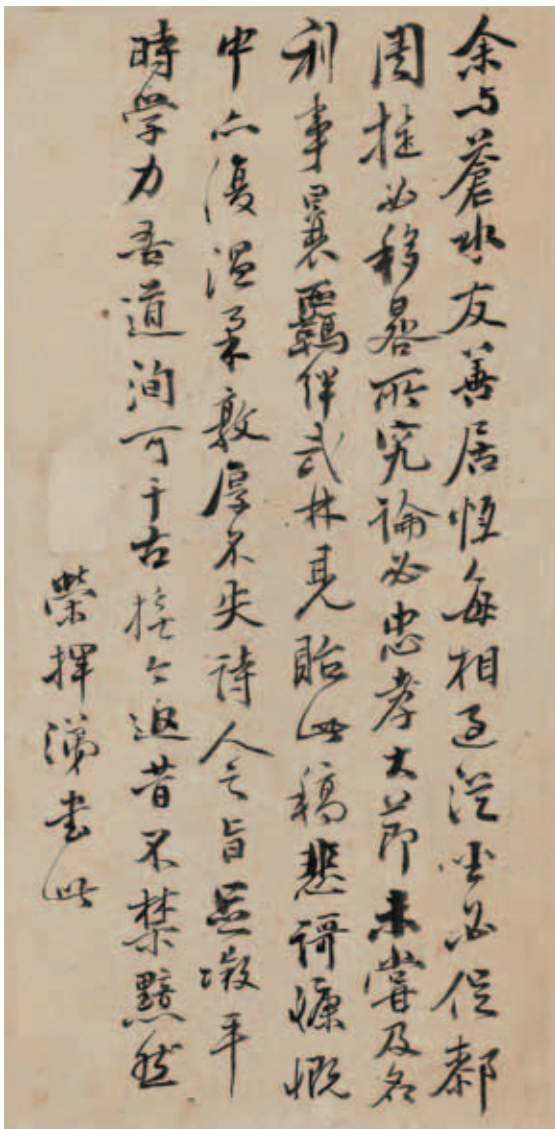 余与蒼水友善居恆每相過從坐必促厀
周旋必移晷所究論必忠孝大節未嘗及名
利事曩羈絆武林見貽此稿悲謌慷慨
中亦復溫柔敦厚不失詩人之旨足徵平
時学力吾道洵可千古撫今追昔不禁黯然
榮揮涕書此